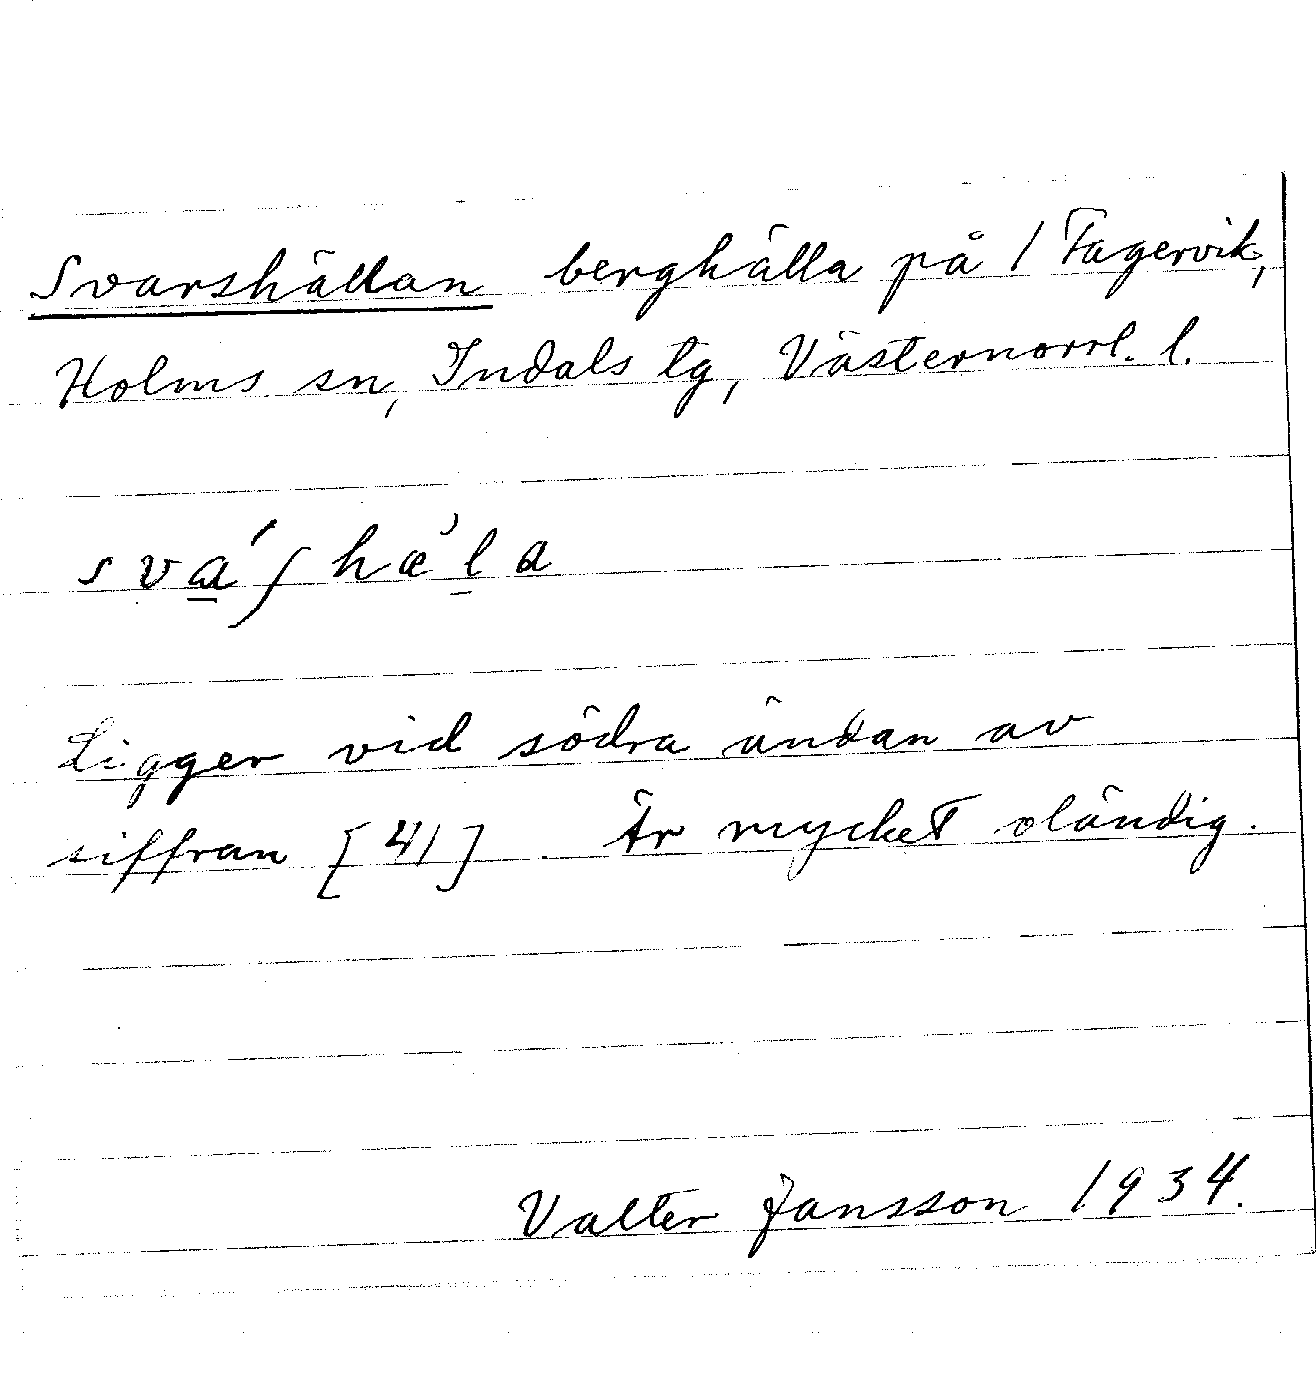 Svarshällan berghälla på 1 Fagervik,
Holms sn, Indals tg, Västernorrl. l.
sva̲´ʃhæ`l̲a
Ligger vid södra ändan av
siffran [41]. Är mycket oländig.
Valter Jansson 1934.